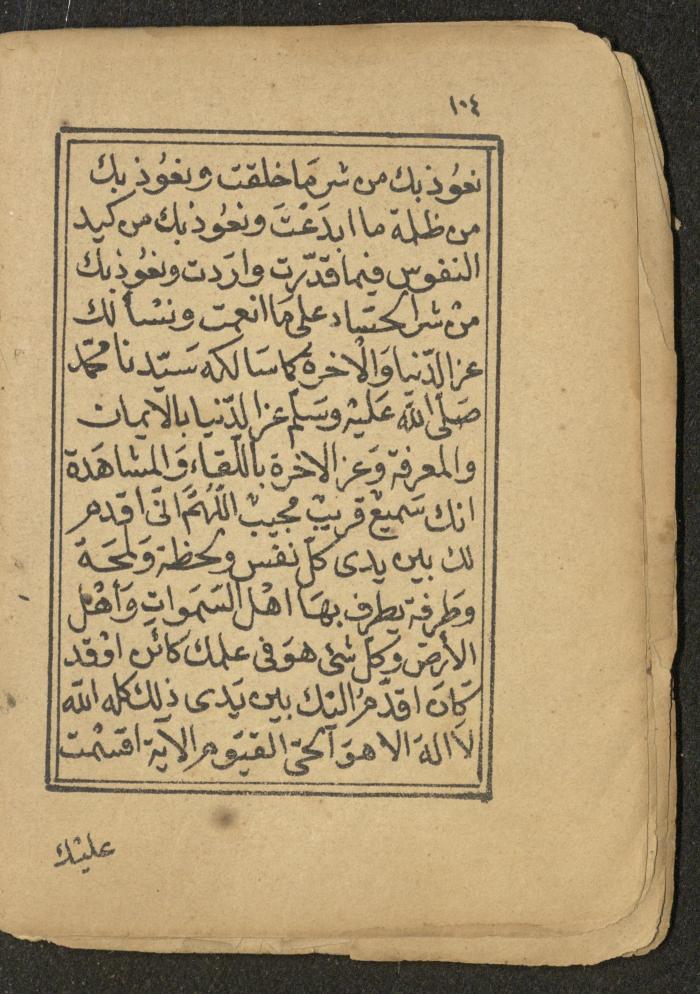 ١٠٤
نعوُذ بك من شر مَا خلقت ونعوُذ بك
من ظلمة ما ابدَعْتَ ونعوُذ بك من كيد
النفوس فيما قدّرت واردت ونعوُذ بك
منْ شر الحسّاد على مَا انعمت ونسْألك
عز الدّنيا وَالْاخرة كما سَالكه سَيّدنا محمّد
صَلّى اللّه عَليْه وسَلّم عز الدّنيا بالايمان
والمعرفة وَعز الاخرة باللّقاء وَالمشاهَدة
انك سَميعْ قريبْ مجيبْ اللّهُمَّ انّى اقدم
لك بين يدى كلّ نفس ولحظة وَلمحَة
وطَرفة يطرف بهَا اهْل السّمَوات وَأهْل
الأرض وَكلّ شئ هوَ فى علمك كائن اوْ قد
كَانَ اقدّمُ اليْك بين يَدى ذلك كله اللّه
لَا الهَ الا هوَ الحىّ القيّوم الاَية اقسَمْت
عليْك